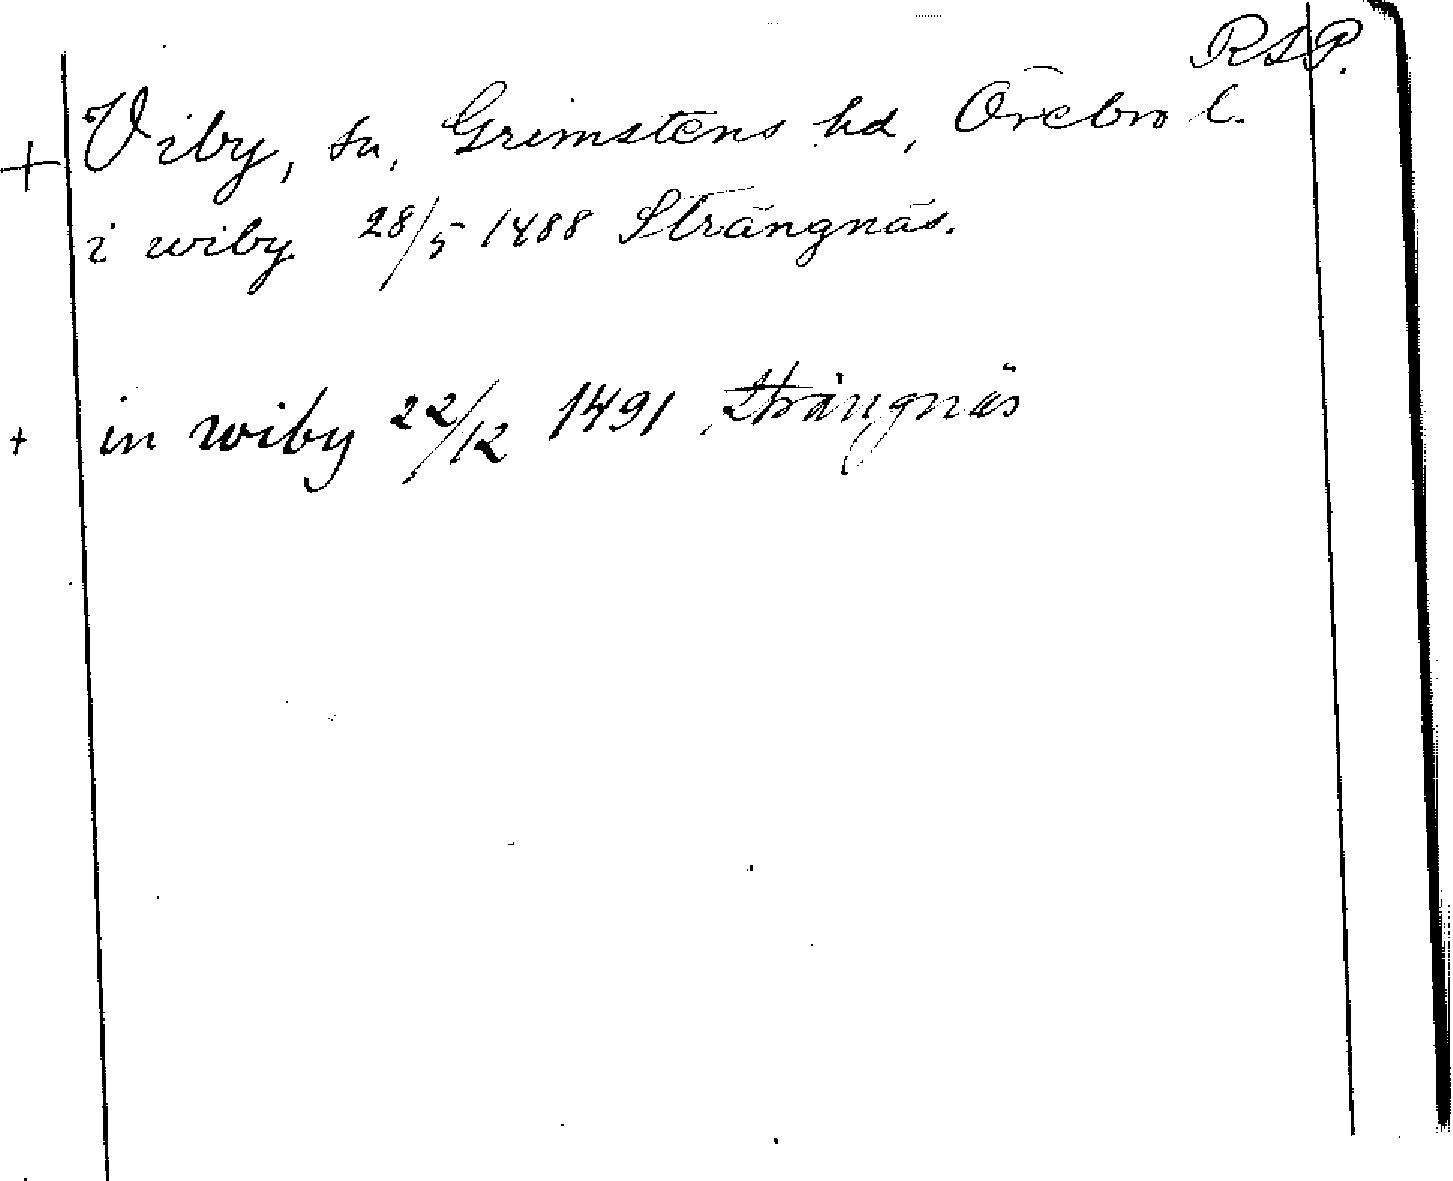 RAP.
+ Viby, sn, Grimstens hd, Örebro l.
i wiby 28/5 1488 Strängnäs.
+ in wiby 22/12 1491 Strängnäs